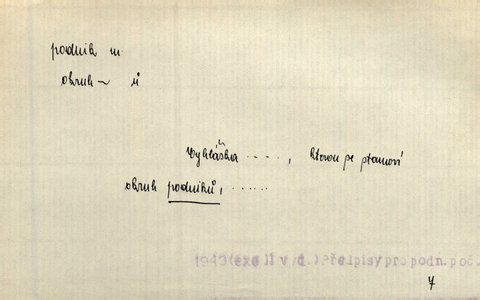 podnik m.
okruh ~ ů
Vyhláška ...., kterou se stanoví
okruh podniků, ......
1943 (exc. li v d.) Předpisy pro podn. poč.
4